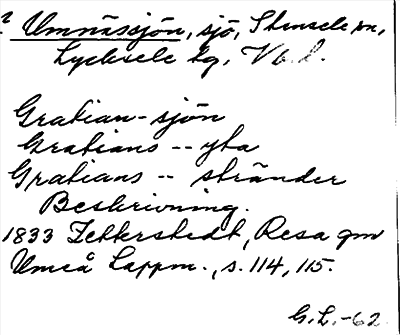 ? Umnässjön, sjö, Stensele sn,
Lycksele lg, Vb.l.
Gratian-sjön
Gratians -- yta
Gratians -- stränder
Beskrivning.
1833 Zetterstedt, Resa gm
Umeå Lappm., s. 114, 115.
G.L.-62